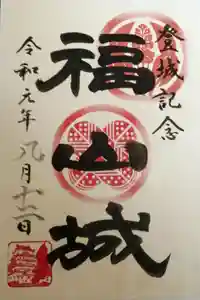 登城記念
福山城
令和元年八月十二日